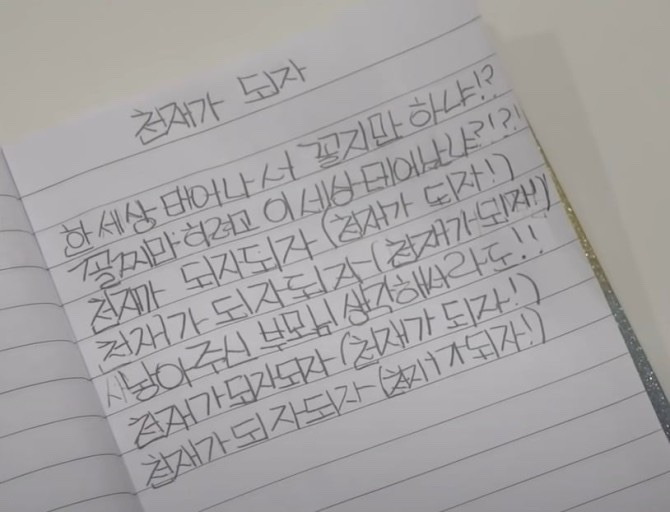 천재가 되자
한 세상 태어나서 꼴지만 하냐!?
꼴찌만 하려고 이 세상 태어났냐?!?!
천재가 되자되자 (천재가 되자!)
천재가 되자되자 (천재가 되자!)
낳아주신 부모님 생각해서라도!!
천재가 되자되자 (천재가 되자!)
천재가 되자되자 (천재가 되자!)